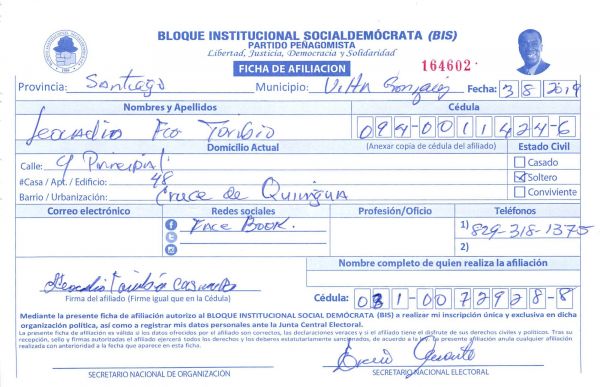 BLOQUE INSTITUCIONAL SOCIALDEMÓCRATA (BIS)
PARTIDO PEÑAGOMISTA
Libertad, Justicia, Democracia y Solidaridad
FICHA DE AFILIACION
164602
Provincia: Santiago Municipio: Villa González Fecha: 3 8 2019
Nombres y Apellidos Cédula
Leocadio Fco Toribio 094-0011424-6
Domicilio Actual (Anexar copia de cédula del afiliado) Estado Civil
Calle: C/ Principal Casado
#Casa / Apt. / Edificio: 48 Soltero
Barrio / Urbanización: Cruce de Quinigua Conviviente
Correo electrónico Redes sociales Profesión/Oficio Teléfonos
Face Book. 1) 829-318-1375
2)
Nombre completo de quien realiza la afiliación
Leocadio Toribio
Firma del afiliado (Firme igual que en la Cédula) Cédula: 031-0072928-8
Mediante la presente ficha de afiliación autorizo al BLOQUE INSTITUCIONAL SOCIAL DEMÓCRATA (BIS) a realizar mi inscripción única y exclusiva en dicha
organización política, así como a registrar mis datos personales ante la Junta Central Electoral.
La presente ficha de afiliación es válida si los datos ofrecidos por el afiliado son correctos, las declaraciones veraces y si el afiliado tiene el disfrute de sus derechos civiles y políticos. Tras su
recepción, sello y firmas autorizadas el afiliado ejercerá todos los derechos y los deberes estatutariamente sancionados, de acuerdo a la ley. La presente afiliación anula cualquier afiliación
realizada con anterioridad a la fecha que aparece en esta ficha.
SECRETARIO NACIONAL DE ORGANIZACIÓN SECRETARIO NACIONAL ELECTORAL